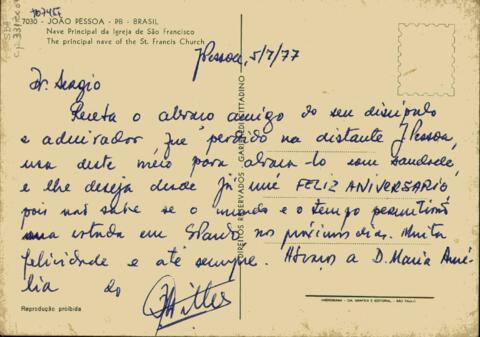 7030 - JOÃO PESSOA - PB - BRASIL
Nave Principal da Igreja de São Francisco
The principal nave of the St. Francis Church
JPessoa, 5/7/77
Dr. Sergio
Receba o abraço amigo do seu discipulo
e admirador, que perdido na distante JPessoa,
usa deste meio para abraça-lo com saudade,
e lhe deseja desde já um FELIZ ANIVERSARIO
pois não sabe se o mundo e o tempo permitirá
sua estada em nos próximos dias. Muita
felicidade e até sempre. Abraços a D. Maria Amé-
lia do
DIREITOS RESERVADOS
Reprodução proibida
- CIA. GRÁFICA E EDITORIAL - SÃO PAULO